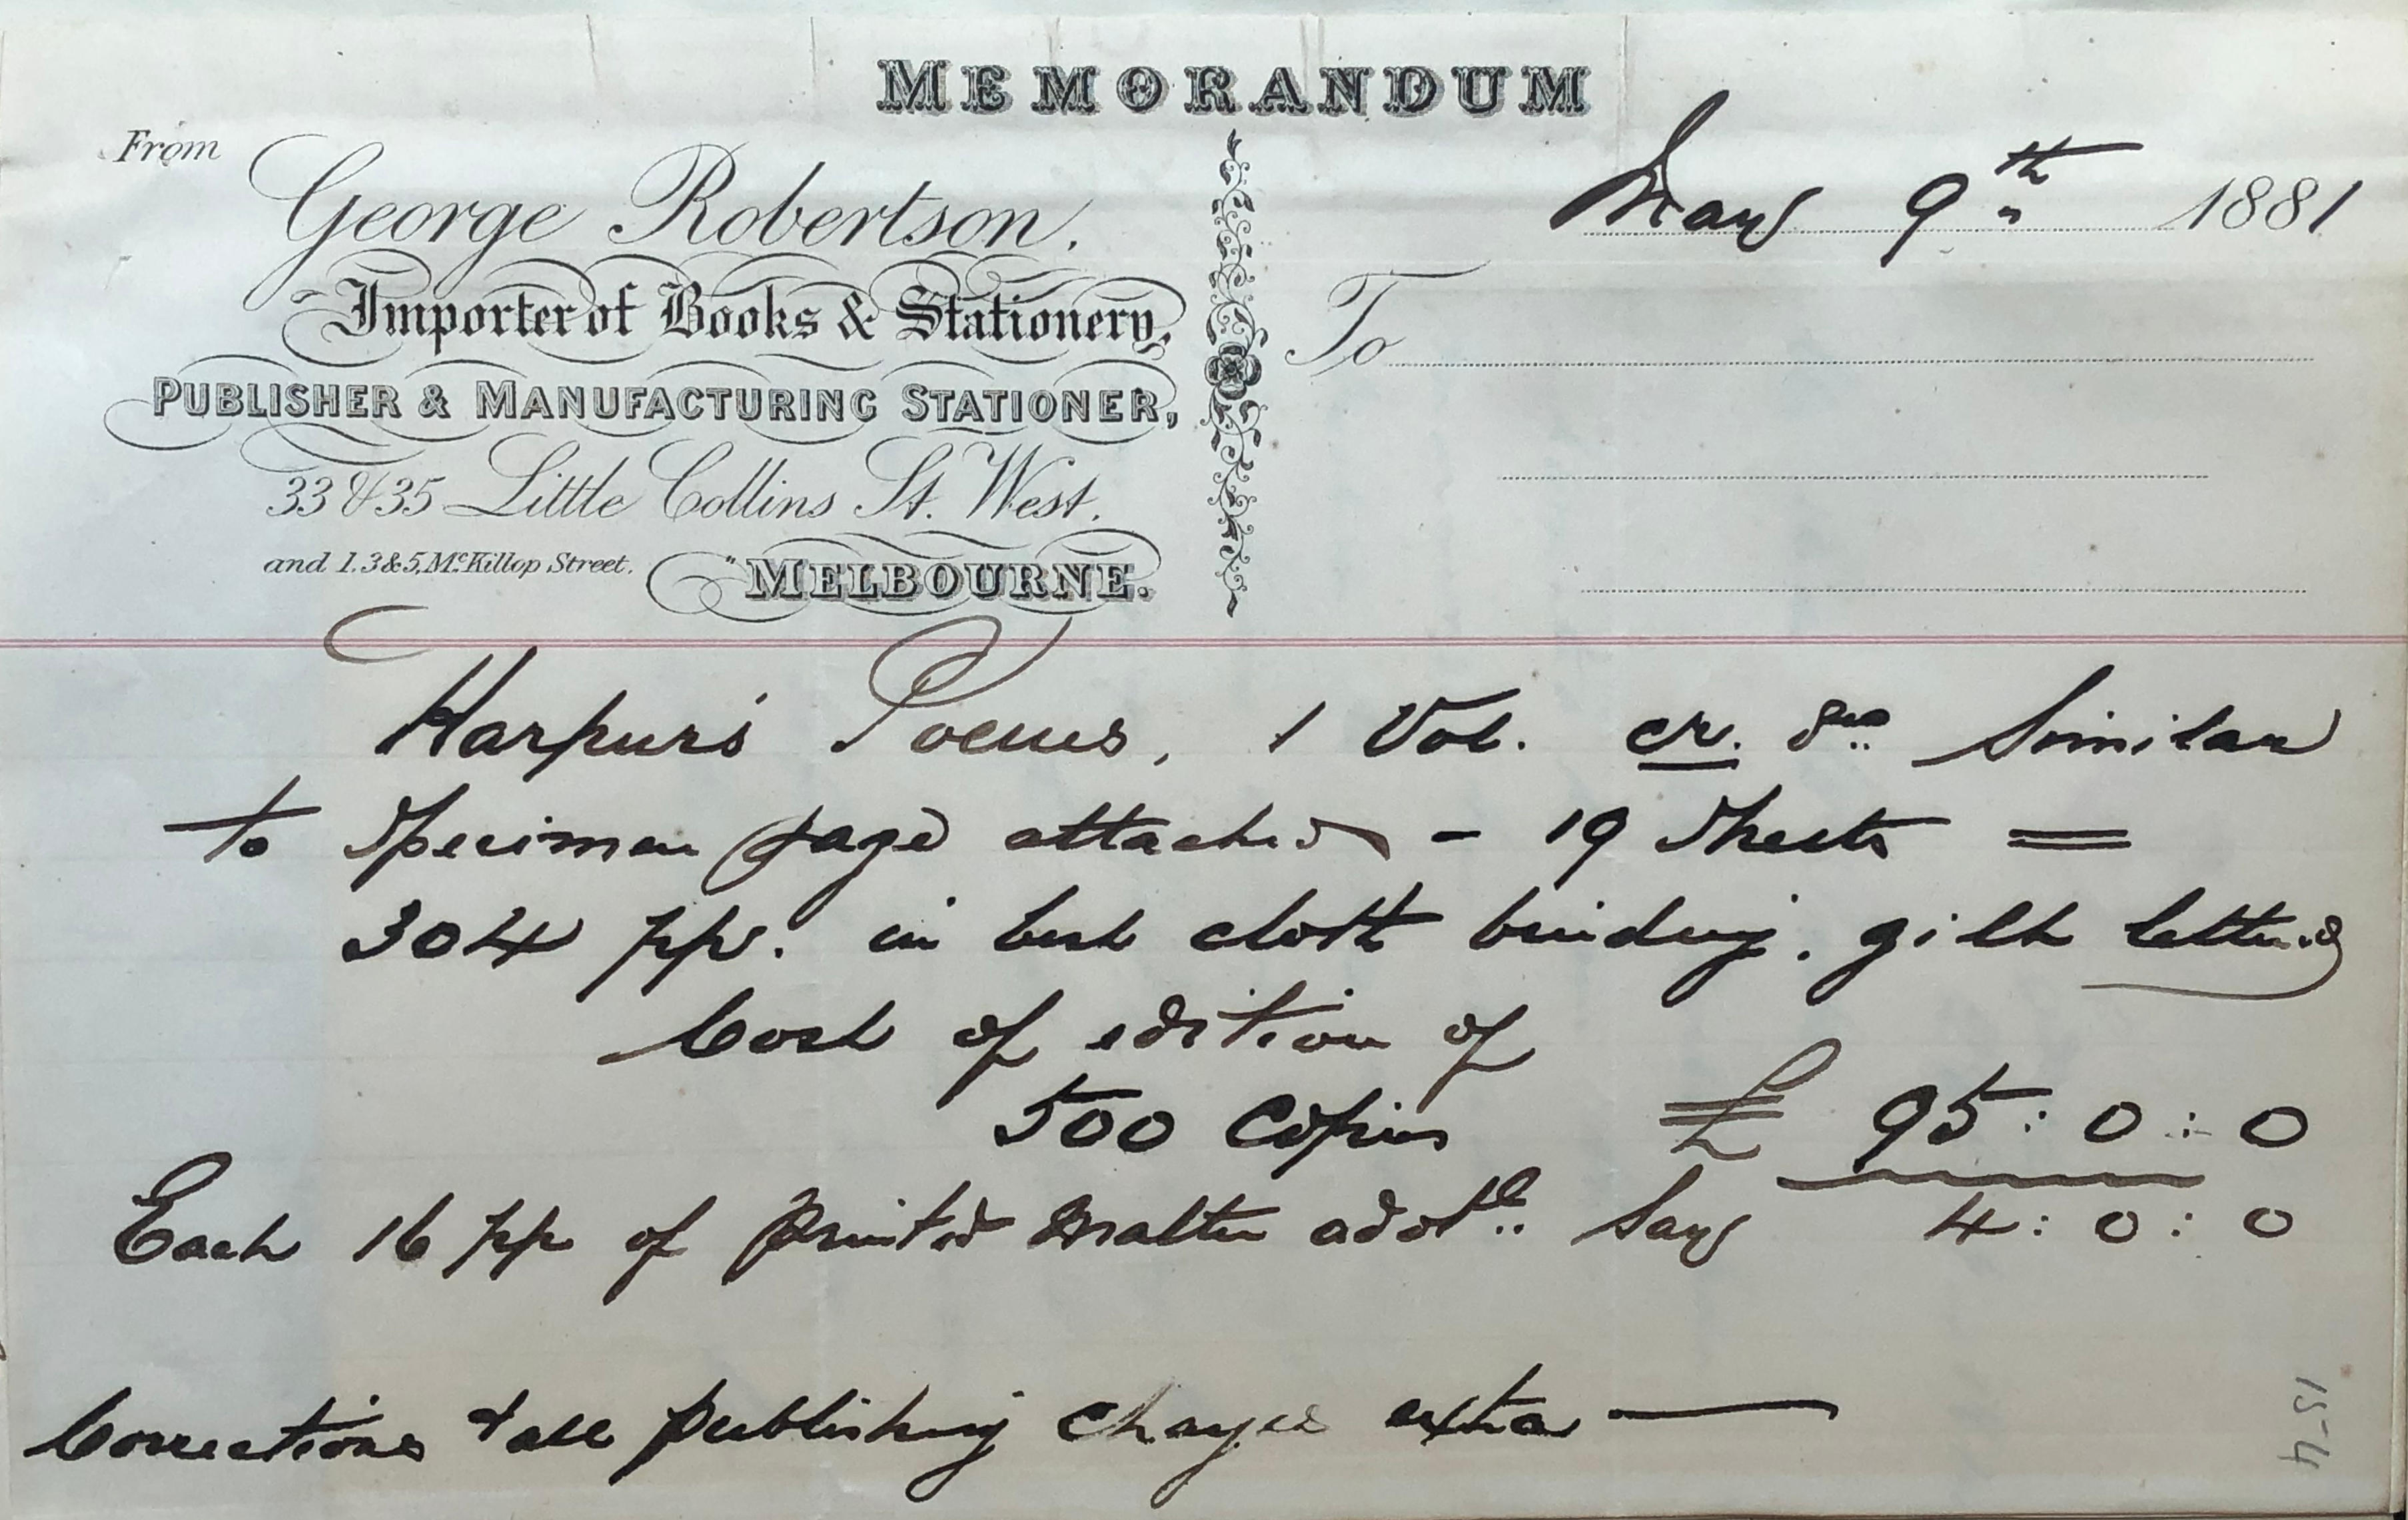 MEMORANDUM
From
George Robertson.
Importer of Books & Stationery,
PUBLISHER & MANUFACTURING STATIONER,
33 & 35 Little Collins St. West.
and 1, 3 & 5, McKillop Street.
MELBOURNE.
May 9th 1881
To
Harpur's Poems, 1 Vol. cr. 8vo Similar
to Specimen page attached - 19 Sheets =
304 pp. in best cloth binding. gilt lettered
Cost of edition of
500 Copies £ 95:0:0
Each 16 pp of printed matter addtl. Say 4:0:0
Corrections & all publishing charges extra —